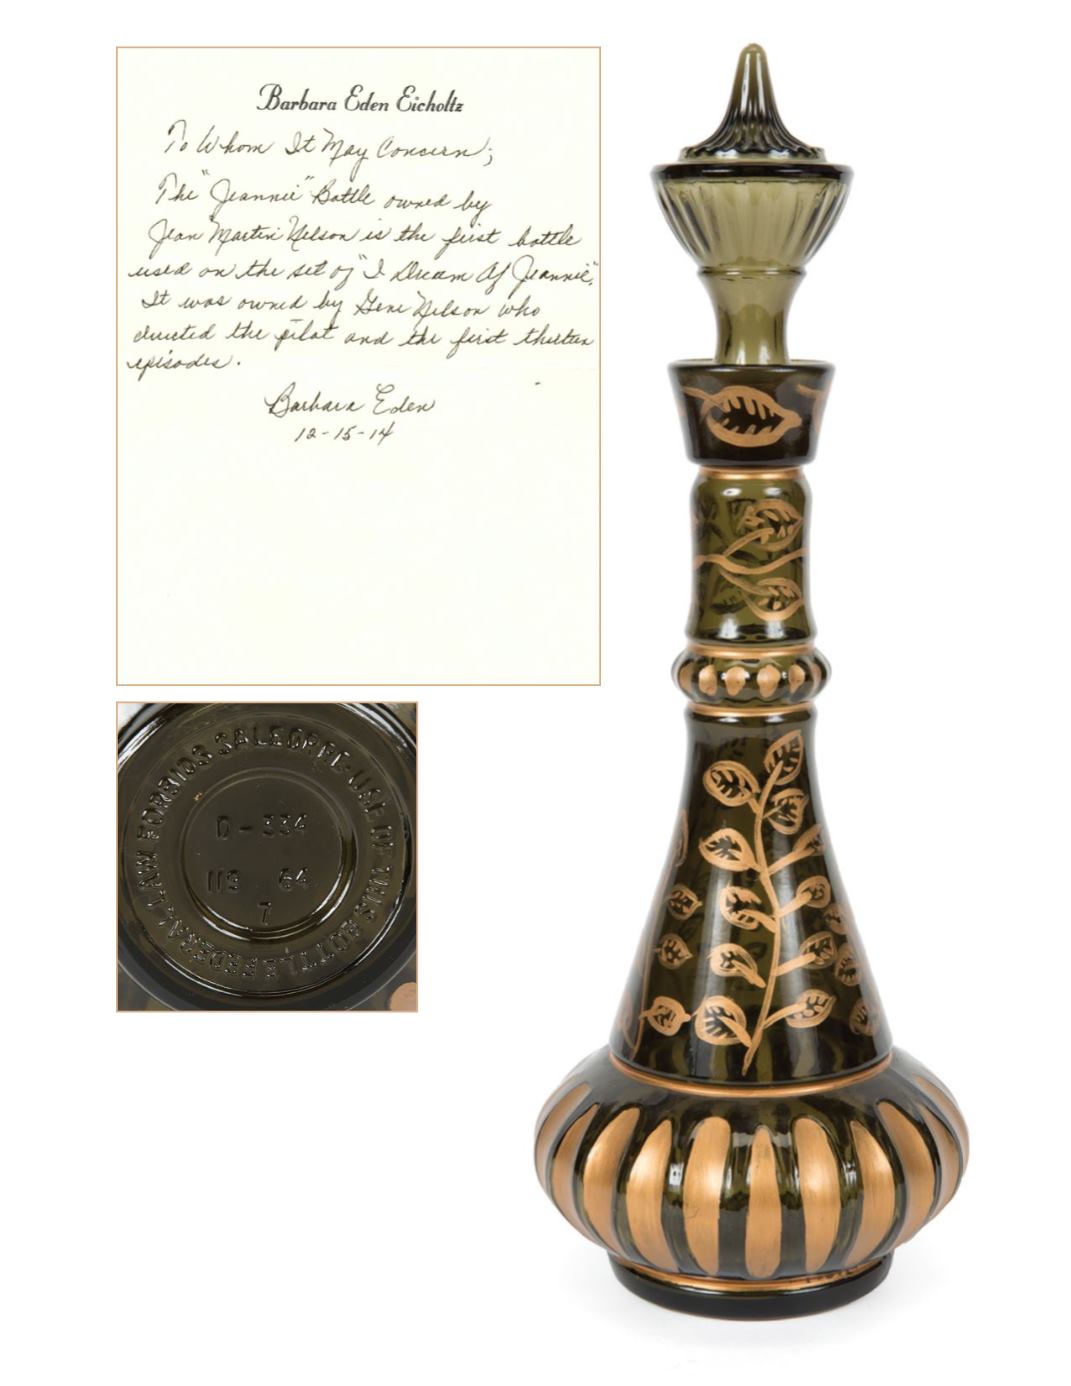 Barbara Eden Eicholtz
To Whom It May Concern;
The "Jeannie" Bottle owned by
Jean Martin Nelson is the first bottle
used on the set of "I Dream Of Jeannie".
It was owned by Gene Nelson who
directed the pilot and the first thirteen
episodes.
Barbara Eden
12-15-14
FEDERAL LAW FORBIDS SALE OR RE-USE OF THIS BOTTLE
D-334
119 64
7